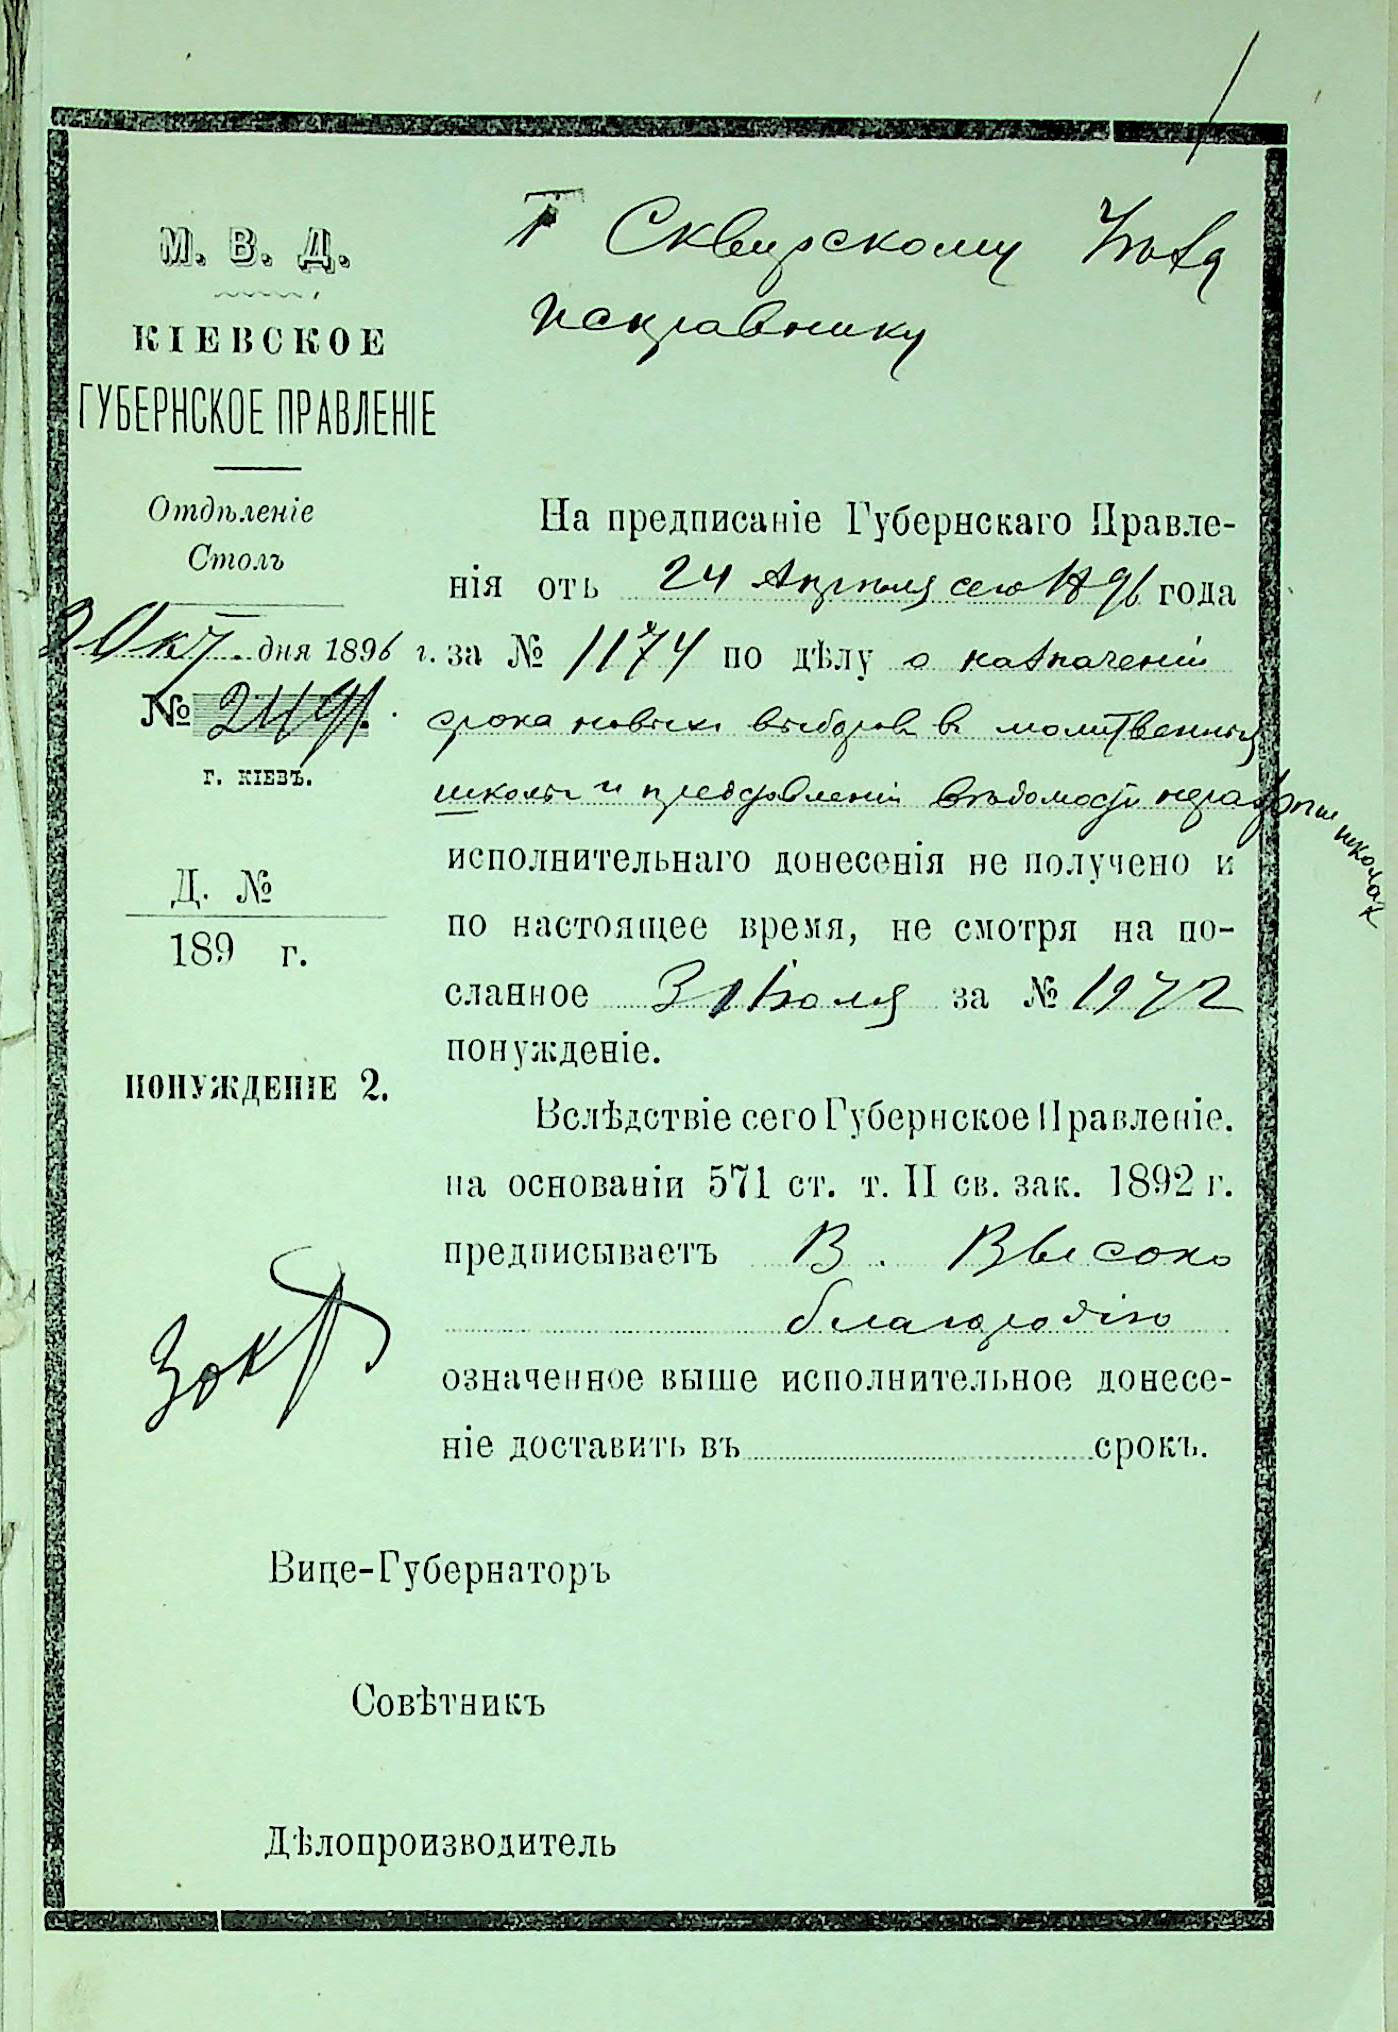 М. В. Д.
КІЕВСКОЕ
ГУБЕРНСКОЕ ПРАВЛЕНІЕ
Отдѣленіе
Столъ
30 Окт. дня 1896 г.
№ 2491.
г. КІЕВЪ.
Д. №
189 г.
ПОНУЖДЕНІЕ 2.
Г Сквирскому Уѣзд
Исправнику
На предписаніе Губернскаго Правле-
нія отъ 24 Апрѣля сего 1896 года
за № 1174 по дѣлу о назначеніи
срока новых выборов в молитвенныя
школы и представленіи вѣдомости школах
исполнительнаго донесенія не получено и
по настоящее время, не смотря на по-
сланное 31 Іюля за № 1972
понужденіе.
Вслѣдствіе сего Губернское Правленіе.
на основаніи 571 ст. т. II св. зак. 1892 г.
предписываетъ В. Высоко
благородію
означенное выше исполнительное донесе-
ніе доставить въ срокъ.
Вице-Губернаторъ
Совѣтникъ
Дѣлопроизводитель